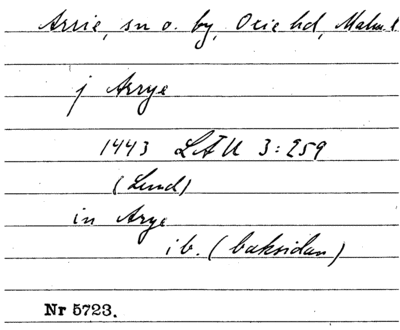 Arrie, sn o. by, Oxie hd, Malm. l
j Arrye
1443 LÄU 3:259
(Lund)
in Arye
ib. (baksidan)
Nr 5723.